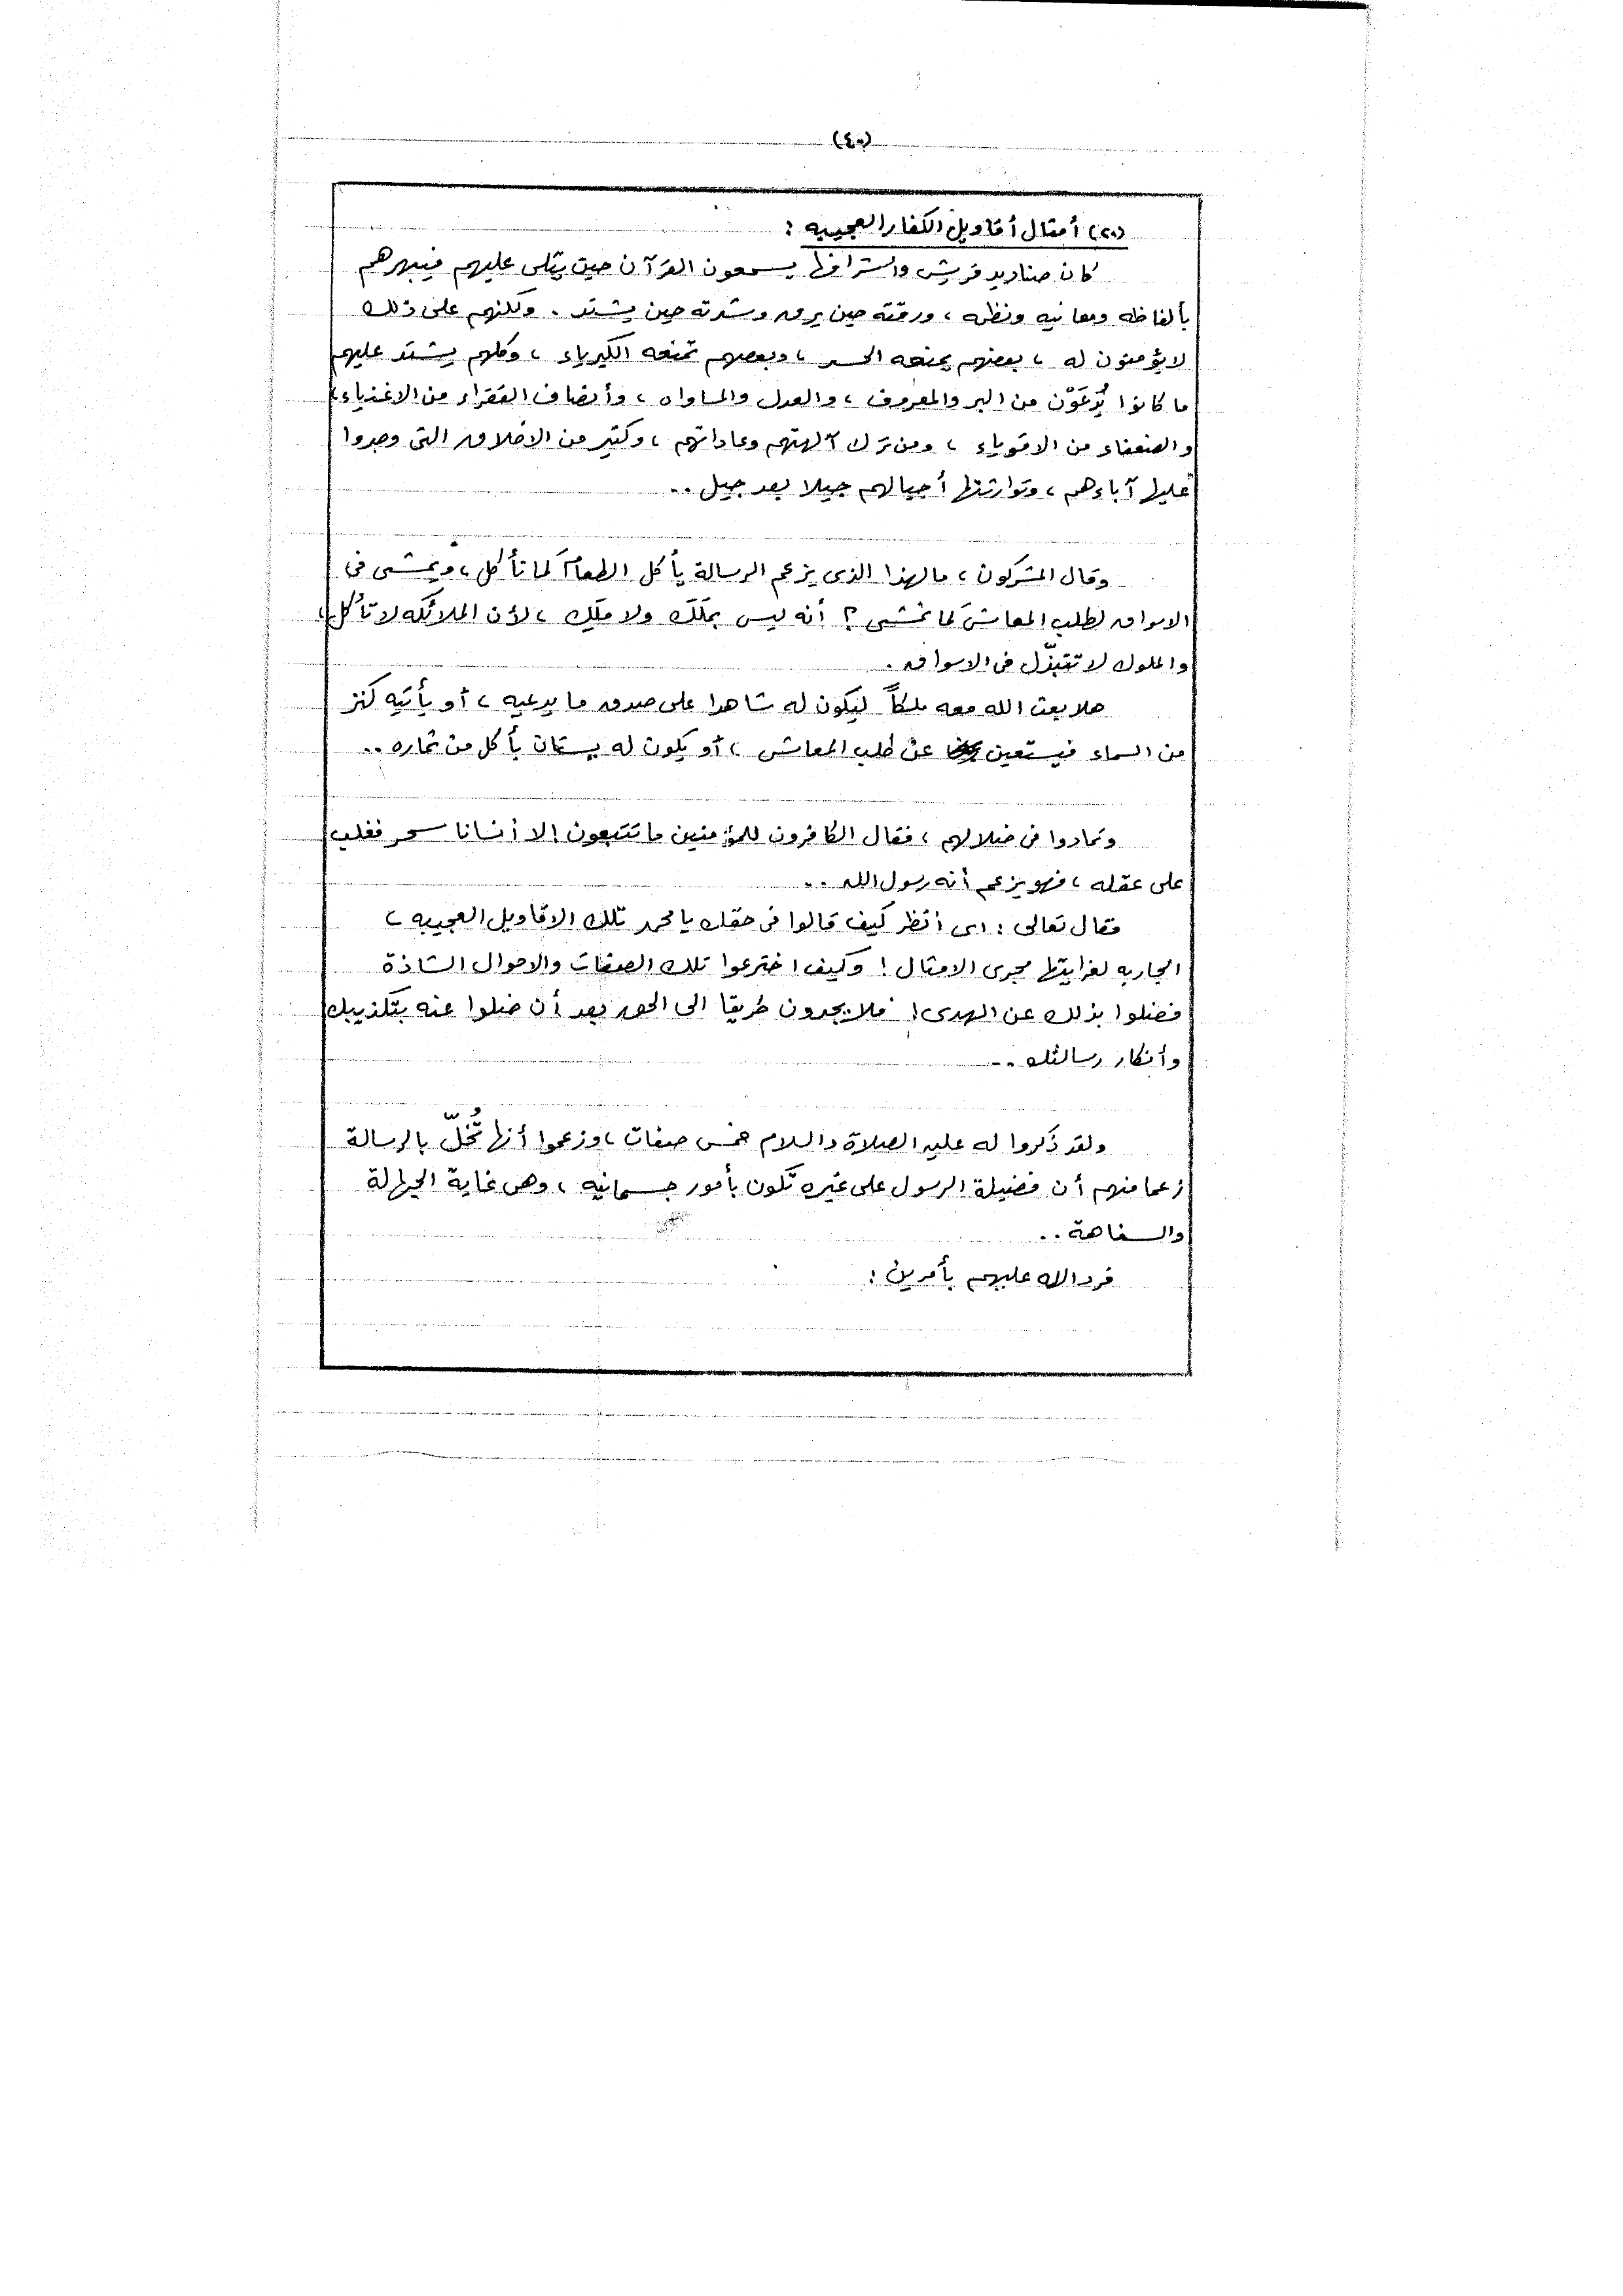 (٤٥)
(٢٠) أمثال أقاويل الكفار العجيبه :
كان صناديد قريش واشرافها يسمعون القرآن حين يتلى عليهم فيبهرهم
بألفاظه ومعانيه ونظمه ، ورقته حين يرق وشدته حين يشتد . ولكنهم على ذلك
لا يؤمنون له ، بعضهم يمنعه الحسد ، وبعضهم تمنعه الكبرياء ، وكلهم يشتد عليهم
ما كانوا يُدعَوْن من البر والمعروف ، والعدل والمساواه ، وأنصاف الفقراء من الاغنياء ،
والضعفاء من الاقوياء ، ومن ترك آلهتهم وعاداتهم ، وكثير من الاخلاق التى وجدوا
عليها آباءهم ، وتوارثتها أجيالهم جيلا بعد جيل ..
وقال المشركون ، ما لهذا الذى يزعم الرسالة يأكل الطعام كما نأكل ، ويمشى فى
الاسواق لطلب المعاش كما نمشى ؟ أنه ليس بملَك ولا ملِك ، لأن الملائكه لا تأكل ،
والملوك لا تتبذّل فى الاسواق .
هلا بعث الله معه ملكاً ليكون له شاهدا على صدق ما يدعيه ، أو يأتيه كنز
من السماء فيستعين عن طلب المعاش ، أو يكون له بستان يأكل من ثماره ..
وتمادوا فى ضلالهم ، فقال الكافرون للمؤمنين ما تتبعون إلا أنسانا سحر فغلب
على عقله ، فهو يزعم أنه رسول الله ..
فقال تعالى : اى أنظر كيف قالوا فى حقك يا محمد تلك الاقاويل العجيبه ،
الجاريه لغرابتها مجرى الامثال ! وكيف اخترعوا تلك الصفات والاحوال الشاذة
فضلوا بذلك عن الهدى ! فلا يجدون طريقا الى الحق بعد أن ضلوا عنه بتكذيبك
وأنكار رسالتك ..
ولقد ذكروا له عليه الصلاة والسلام خمس صفات ، وزعموا أنها تُخلّ بالرسالة
زعما منهم أن فضيلة الرسول على غيره تكون بأمور جسمانيه ، وهى غاية الجهالة
والسفاهة ..
فرد الله عليهم بأمرين :